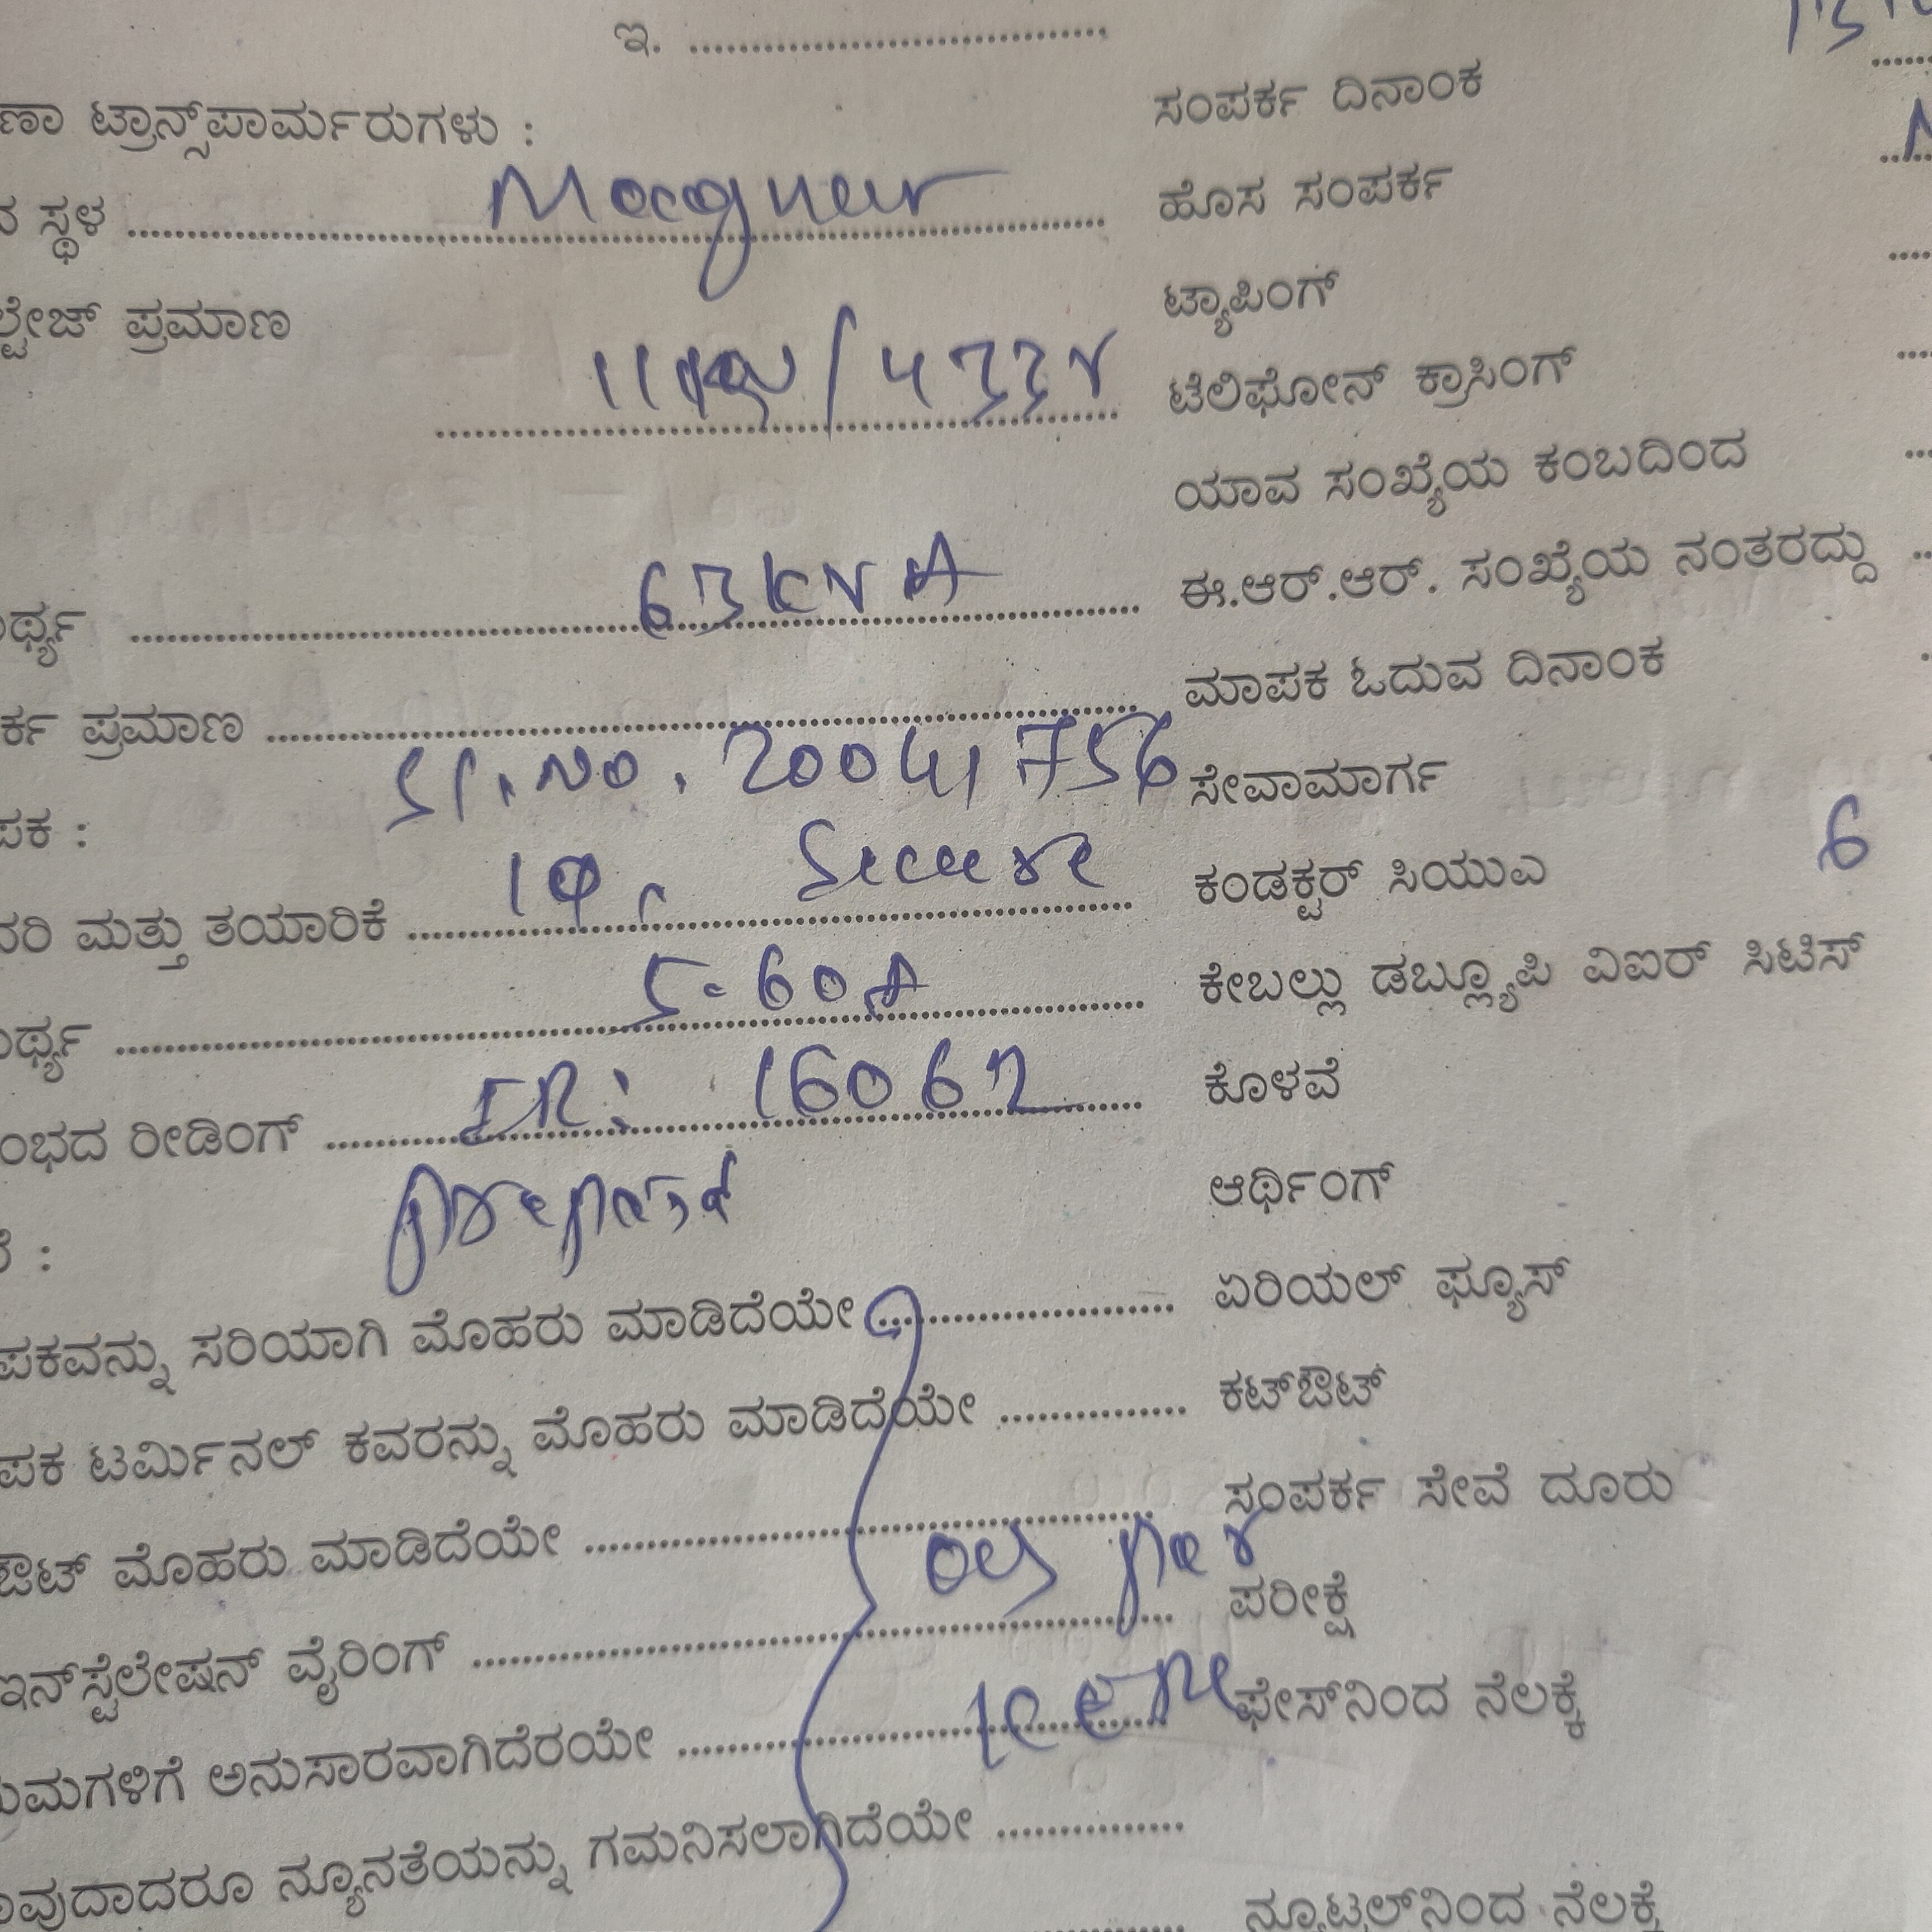 ಇ. ........................................
ಣಾ ಟ್ರಾನ್ಸ್‌ಪಾರ್ಮರುಗಳು :
ಸಂಪರ್ಕ ದಿನಾಂಕ
ಸ್ಥಳ ........................................
ಹೊಸ ಸಂಪರ್ಕ
ಲ್ಟೇಜ್ ಪ್ರಮಾಣ
ಟ್ಯಾಪಿಂಗ್
11KV/433V
ಟೆಲಿಫೋನ್ ಕ್ರಾಸಿಂಗ್
ಯಾವ ಸಂಖ್ಯೆಯ ಕಂಬದಿಂದ
ರ್ಥ್ಯ 63KVA
ಈ.ಆರ್.ಆರ್. ಸಂಖ್ಯೆಯ ನಂತರದ್ದು
ರ್ಕ ಪ್ರಮಾಣ ........................................
ಮಾಪಕ ಓದುವ ದಿನಾಂಕ
Sl.No. 20041756
ಸೇವಾಮಾರ್ಗ
ಪಕ :
ದರಿ ಮತ್ತು ತಯಾರಿಕೆ 1φ, Secure
ಕಂಡಕ್ಟರ್ ಸಿಯುಎ 6
ರ್ಥ್ಯ 5-60A
ಕೇಬಲ್ಲು ಡಬ್ಲ್ಯೂಪಿ ವಿಐರ್ ಸಿಟಿಸ್
ಂಭದ ರೀಡಿಂಗ್ IR: 16062
ಕೊಳವೆ
ಆರ್ಥಿಂಗ್
ಪಕವನ್ನು ಸರಿಯಾಗಿ ಮೊಹರು ಮಾಡಿದೆಯೇ ....................
ಏರಿಯಲ್ ಫ್ಯೂಸ್
ಪಕ ಟರ್ಮಿನಲ್ ಕವರನ್ನು ಮೊಹರು ಮಾಡಿದೆಯೇ ................
ಕಟ್‌ಔಟ್
ಔಟ್ ಮೊಹರು ಮಾಡಿದೆಯೇ ........................................
ಸಂಪರ್ಕ ಸೇವೆ ದೂರು
as per
ಇನ್‌ಸ್ಟೆಲೇಷನ್ ವೈರಿಂಗ್ ........................................
ಪರೀಕ್ಷೆ
KEM
ಯಮಗಳಿಗೆ ಅನುಸಾರವಾಗಿದೆರಯೇ ........................................
ಫೇಸ್‌ನಿಂದ ನೆಲಕ್ಕೆ
ಾವುದಾದರೂ ನ್ಯೂನತೆಯನ್ನು ಗಮನಿಸಲಾಗಿದೆಯೇ ................
ನ್ಯೂಟ್ರಲ್‌ನಿಂದ ನೆಲಕ್ಕೆ